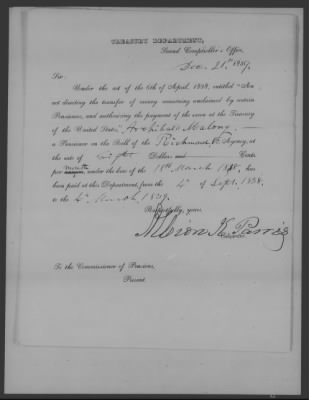 TREASURY DEPARTMENT,
Second Comptroller's Office,
Dec. 21st 1839.
Sir:
Under the act of the 6th of April, 1838, entitled "An
act directing the transfer of money remaining unclaimed by certain
Pensioners, and authorizing the payment of the same at the Treasury
of the United States," Archibald Malony,
a Pensioner on the Roll of the Richmond Va Agency, at
the rate of Eight Dollars and — Cents
per month under the law of the 18th March 1818, has
been paid at this Department, from the 4th of Sept. 1838,
to the 4th March, 1839.
Respectfully, yours,
Albion K. Parris
Comptroller.
To the Commissioner of Pensions,
Present.